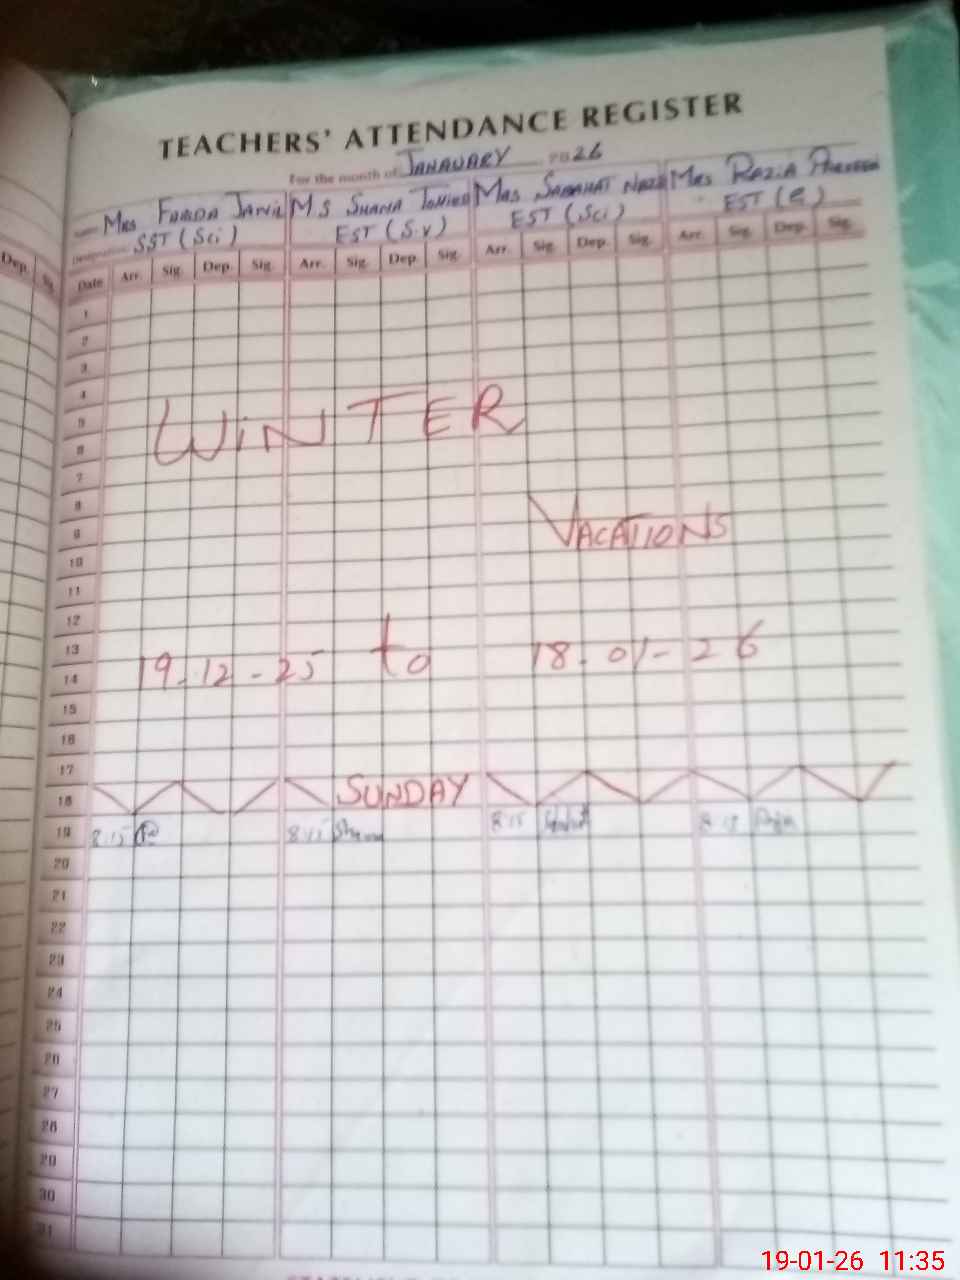 TEACHERS' ATTENDANCE REGISTER
For the month of JANAUARY 2026
Mrs FARIDA JAMIL MS SHAMA Mrs SABAHAT NAZIR Mrs RAZIA PARVEEN
SST (Sci) EST (S.V) EST (Sci) EST (G)
Dep. Date Arr. Sig. Dep. Sig. Arr. Sig. Dep. Sig. Arr. Sig. Dep. Sig. Arr. Sig. Dep. Sig.
1
2
3
4
5
WINTER
6
7
8
9 VACATIONS
10
11
12
13
19-12-25 to 18-01-26
14
15
16
17
18 SUNDAY
19 8:15 8:15 Shama 8:15 8:15
20
21
22
23
24
25
26
27
28
29
30
31
19-01-26 11:35